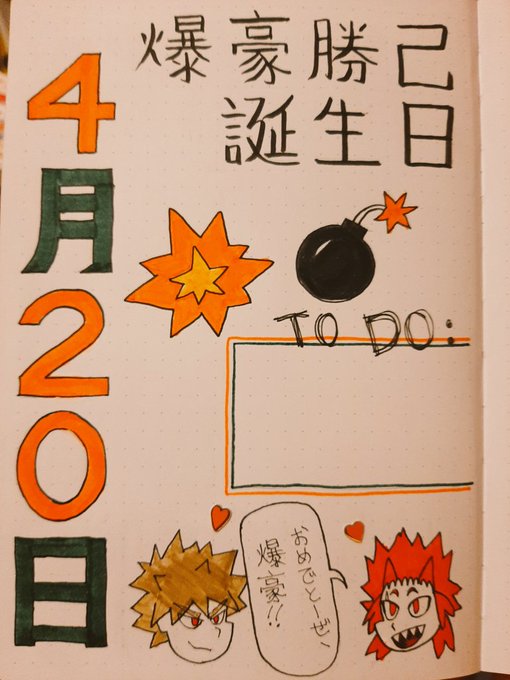 爆豪勝己
誕生日
4月20日
TO DO:
おめでとーぜ、
爆豪!!